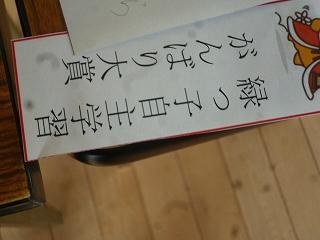 緑っ子自主学習
がんばり大賞